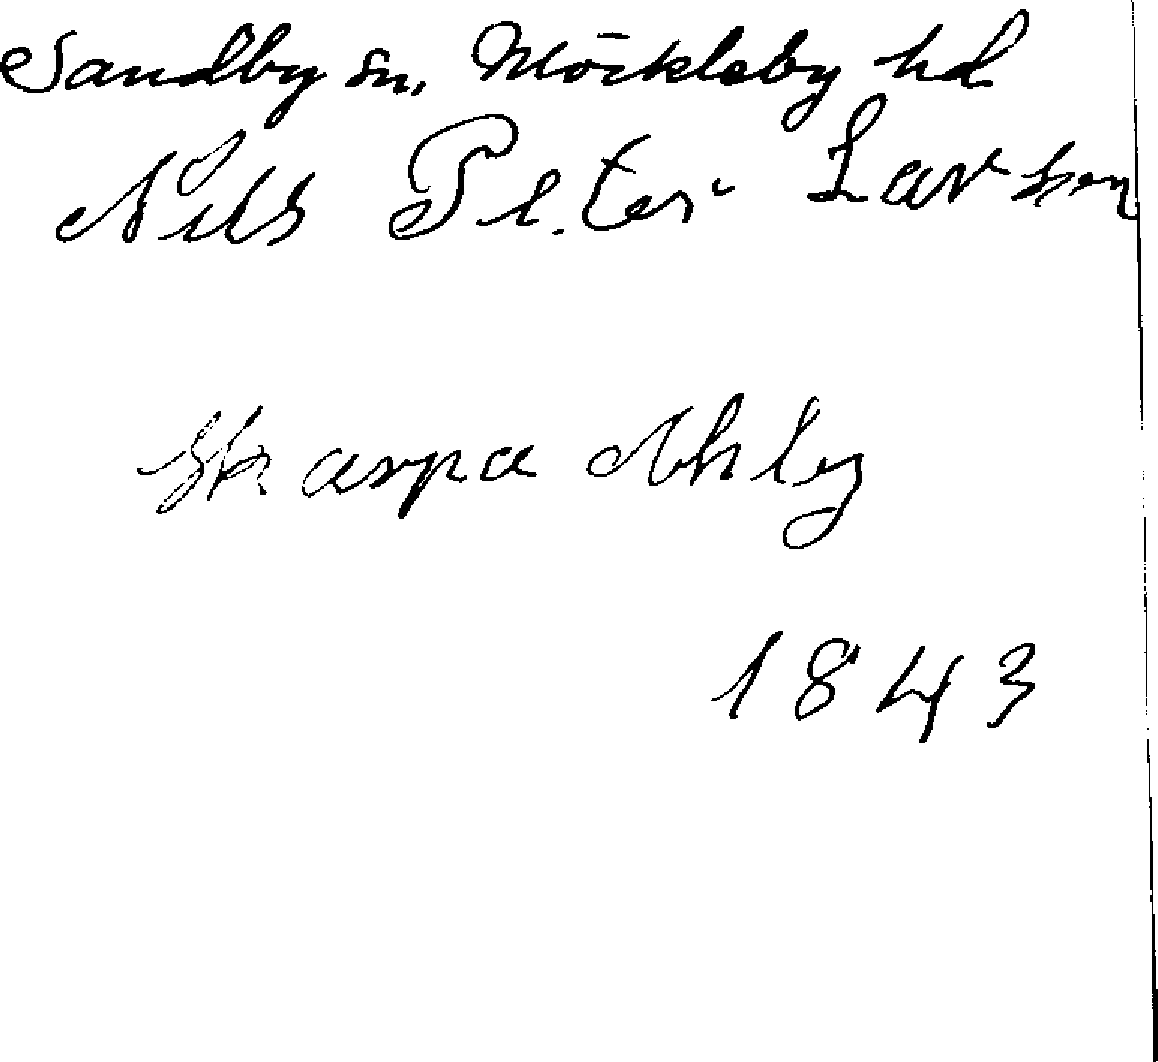 Sandby sn, Möckleby hd
Nils Peter Larsson
Skarpa Ahlby
1843